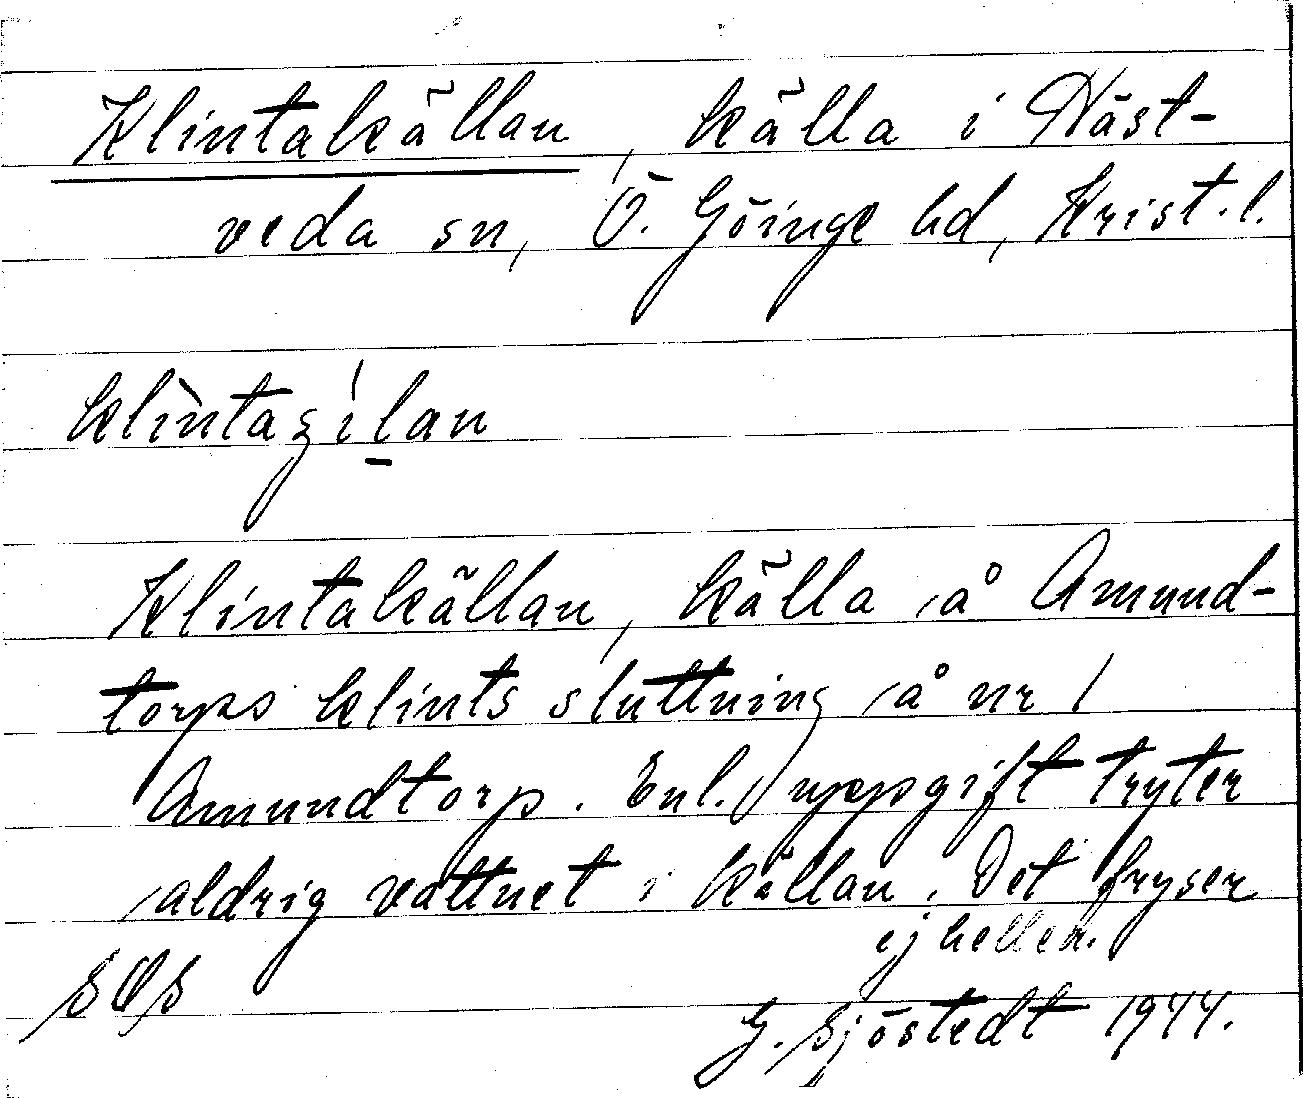 Klintakällan, källa i Häst-
veda sn, Ö. Göinge hd, Krist. l.
klìntaʒílan
Klintakällan, källa å Amund-
torps klints sluttning å nr 1
Amundtorp. Enl. uppgift tryter
aldrig vattnet i källan. Det fryser
ej heller.
SOS
G. Sjöstedt 1944.